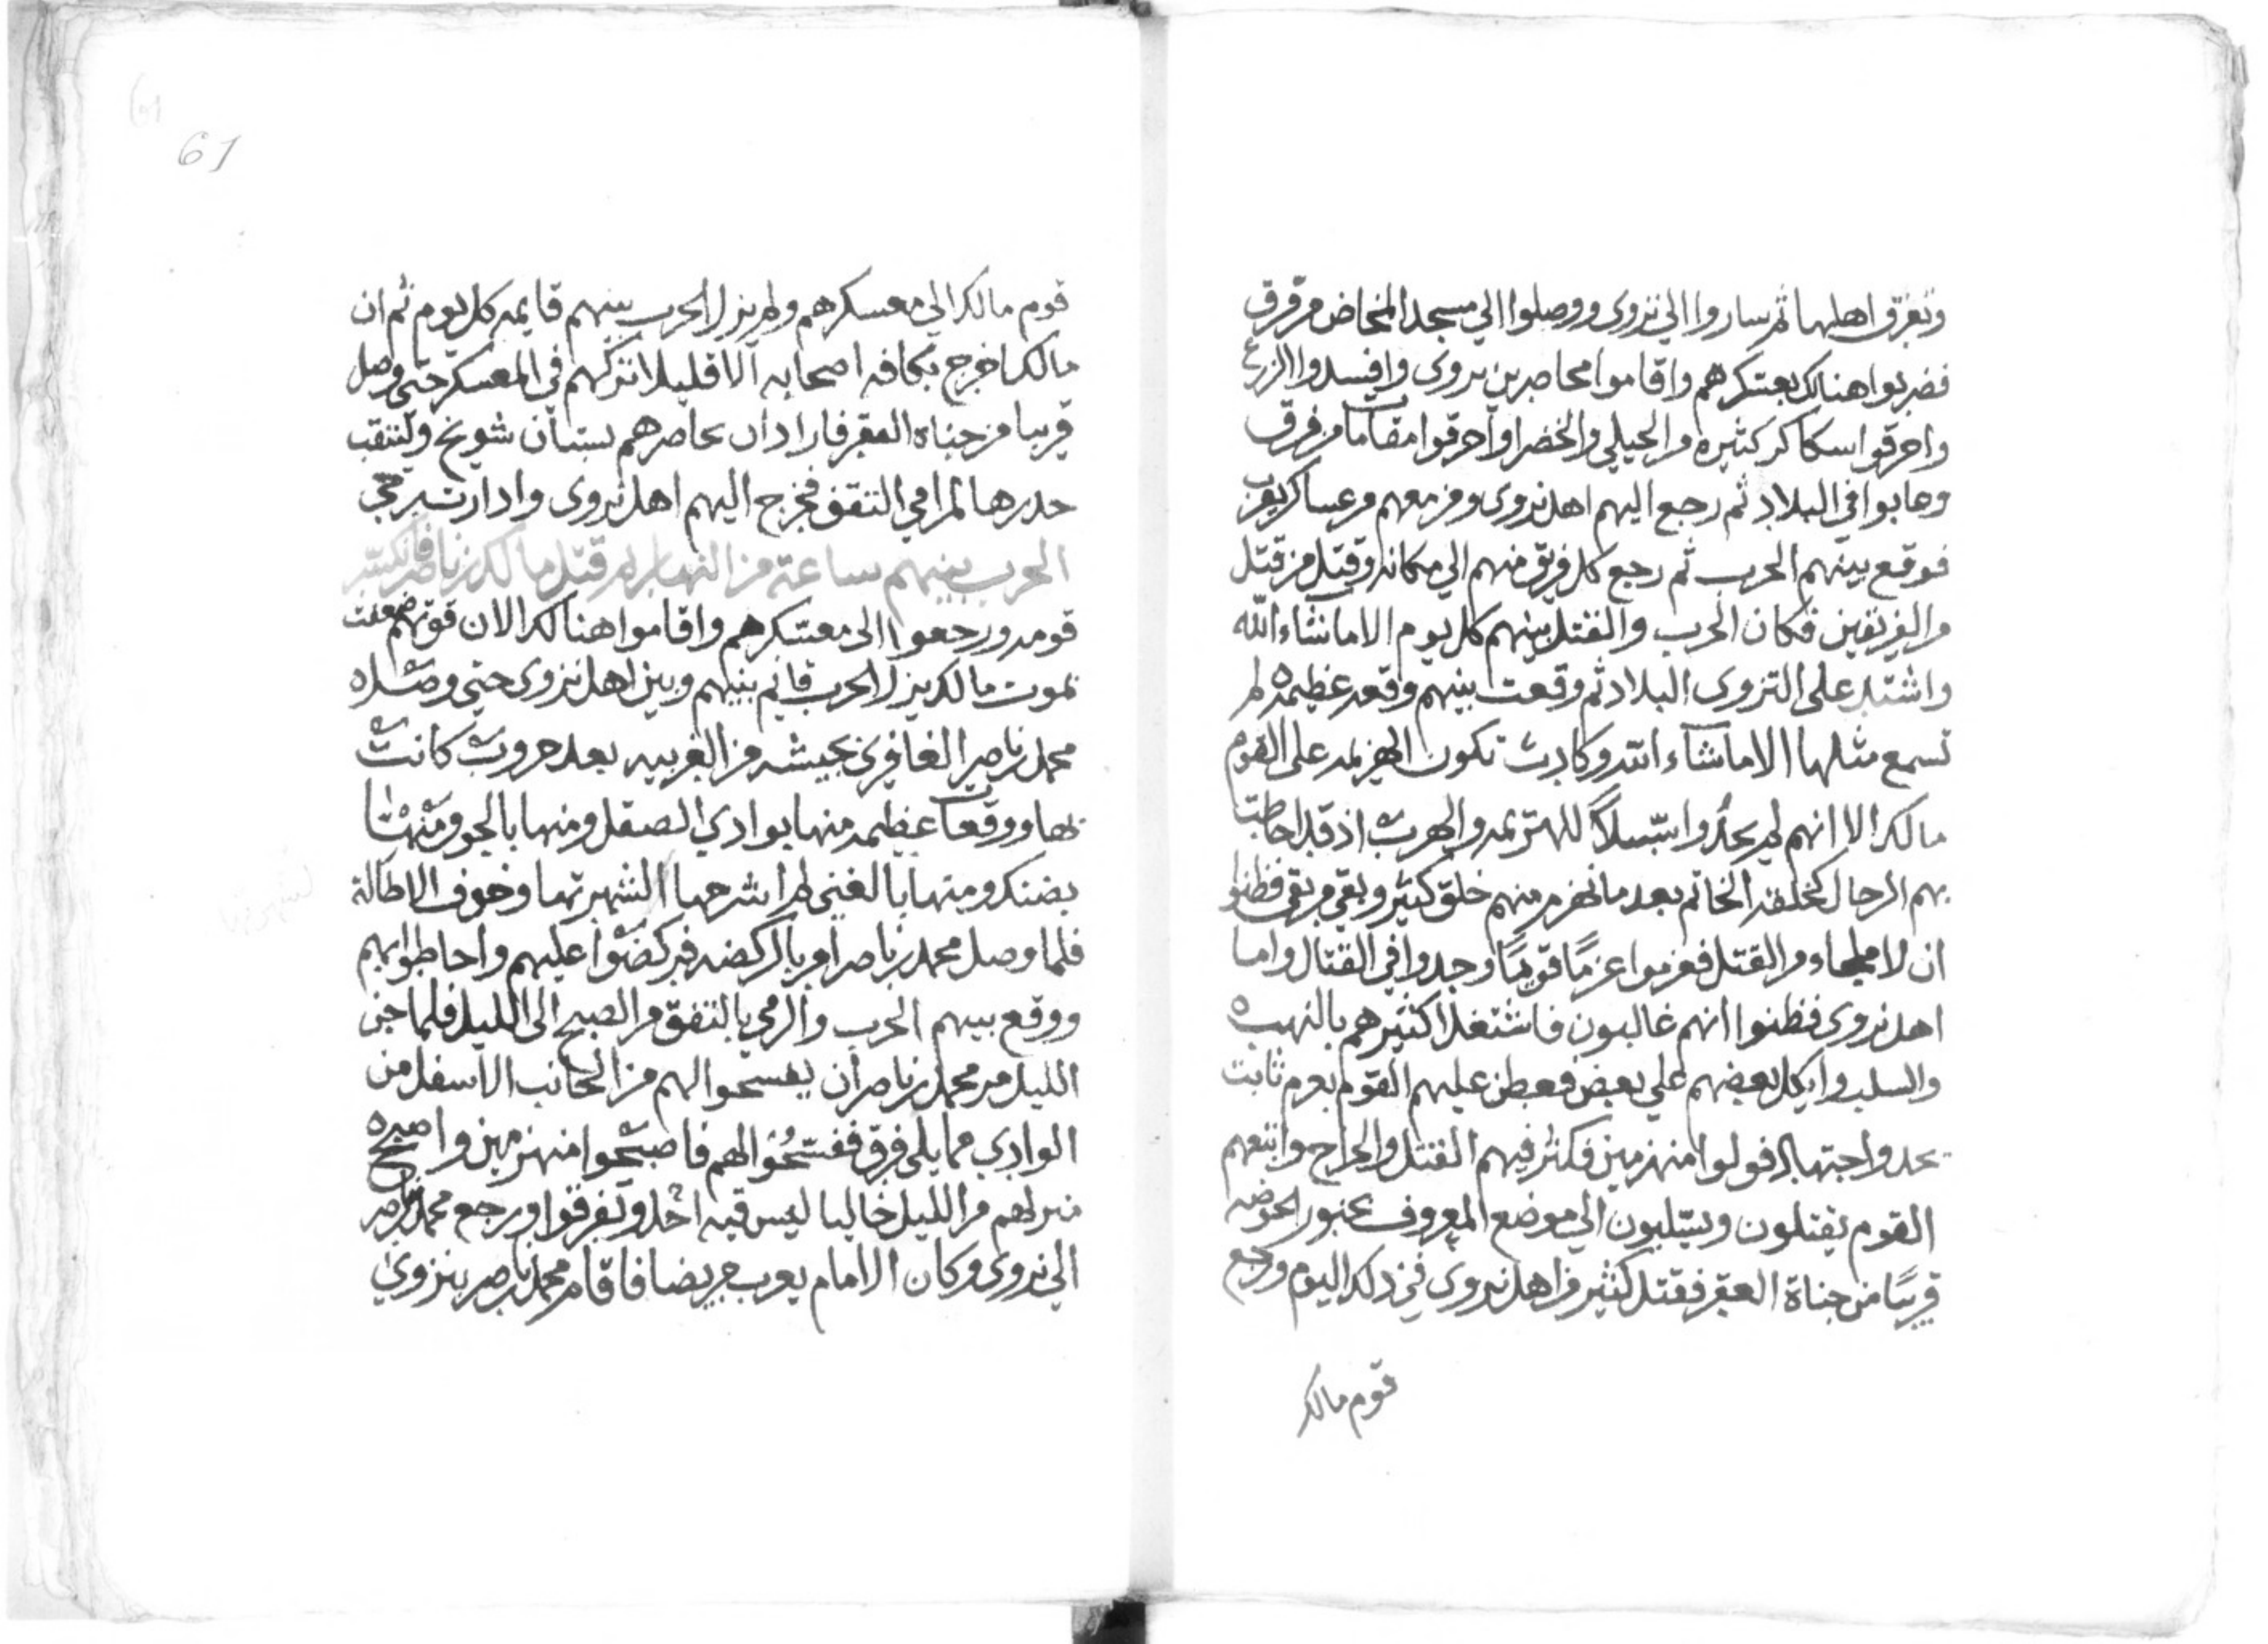 وتفرق اهلها ثم ساروا الي نزوى ووصلوا الي مسجد المخاض من فرق
فضربوا هنالك بعسكرهم واقاموا محاصرين نزوى وافسدوا الزرع
واحرقوا سكاكر كثيره من الحيلي والخضرا واحرقوا مقامات من فرق
وعابوا في البلاد ثم رجع اليهم اهل نزوى ومن معهم من عساكر يعرب
فوقع بينهم الحرب ثم رجع كل فريق منهم الي مكانه وقتل من قتل
من الفريقين فكان الحرب والقتل بينهم كل يوم الا ما شاء الله
واشتد على النزوى البلاد ثم وقعت بينهم وقعه عظيمه لم
تسمع مثلها الا ماشاء الله وكادت تكون الهزيمه على القوم
مالك الا انهم لم يجدوا سبيلاً للهزيمه والهرب اذ قد احاطت
بهم الرجال كخلقه الخاتم بعد ما نهزم منهم خلق كثير وبقي من بقي فظنوا
ان لا ملجاء من القتل فعزموا عزمًا قويًا وجدوا في القتال واما
اهل نزوى فظنوا انهم غالبون فاشتغل اكثرهم بالنهب
والسلب واتكل بعضهم علي بعض فعطف عليهم القوم بعزم ثابت
بجد واجتهاد فولوا منهزمين فكثر فيهم القتل والجراح واتبعهم
القوم يقتلون ويسلبون الي موضع المعروف بجنور الحوضه
قريبًا من جناة العقر فقتل كثير من اهل نزوى في ذلك اليوم ورجع
قوم مالك
61
قوم مالك الي معسكرهم ولم يزل الحرب بينهم قايمه كل يوم ثم ان
مالكا خرج بكافه اصحابه الا قليلا تركهم في المعسكر حتى وصل
قريبا من جناة العقر فاراد ان يحاصرهم ببستان شويخ ولتنقب
جدرها لمرامي التفق فخرج اليهم اهل نزوى وادارت رحى
الحرب بينهم ساعة من النهار ثم قتل مالك بن ناصر فانكسر
قومه ورجعوا الى معسكرهم واقاموا هنالك الا ان قوتهم ضعفت
بموت مالك يزل الحرب قايم بينهم وبين اهل نزوى حتي وصل
محمد بن ناصر الغافري بجيشه من الغربيه بعد حروب كانت
بها ووقعات عظيمه منها بوادي الصقل ومنها بالجو ومنها
بضنك ومنها بالغبي لم اشرحها لشهرتها وخوف الاطالة
فلما وصل محمد بن ناصر امر بالركضه فركضوا عليهم واحاطوا بهم
ووقع بينهم الحرب والرمي بالتفق من الصبح الى الليل فلما جن
الليل مر محمد بن ناصر ان يفسحوا لهم من الجانب الاسفل من
الوادي مما يلي فرق ففسحوا لهم فاصبحوا منهزمين واصبح
منزلهم من الليل خاليا ليس فيه احد وتفرقوا ورجع محمد بن ناصر
الي نزوى وكان الامام يعرب مريضا فاقام محمد بن ناصر بنزوي